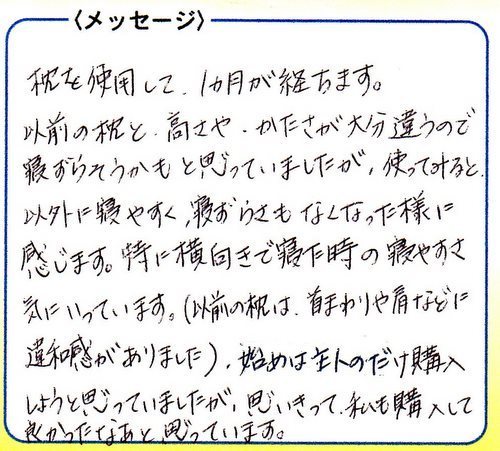 〈メッセージ〉
枕を使用して、1ヵ月が経ちます。
以前の枕と、高さや、かたさが大分違うので
寝づらそうかもと思っていましたが、使ってみると、
以外に寝やすく、寝づらさもなくなった様に
感じます。特に横向きで寝た時の寝やすさ
気にいっています。(以前の枕は、首まわりや肩などに
違和感がありました)、始めは主人のだけ購入
しようと思っていましたが、思いきって、私も購入して
良かったなあと、思っています。